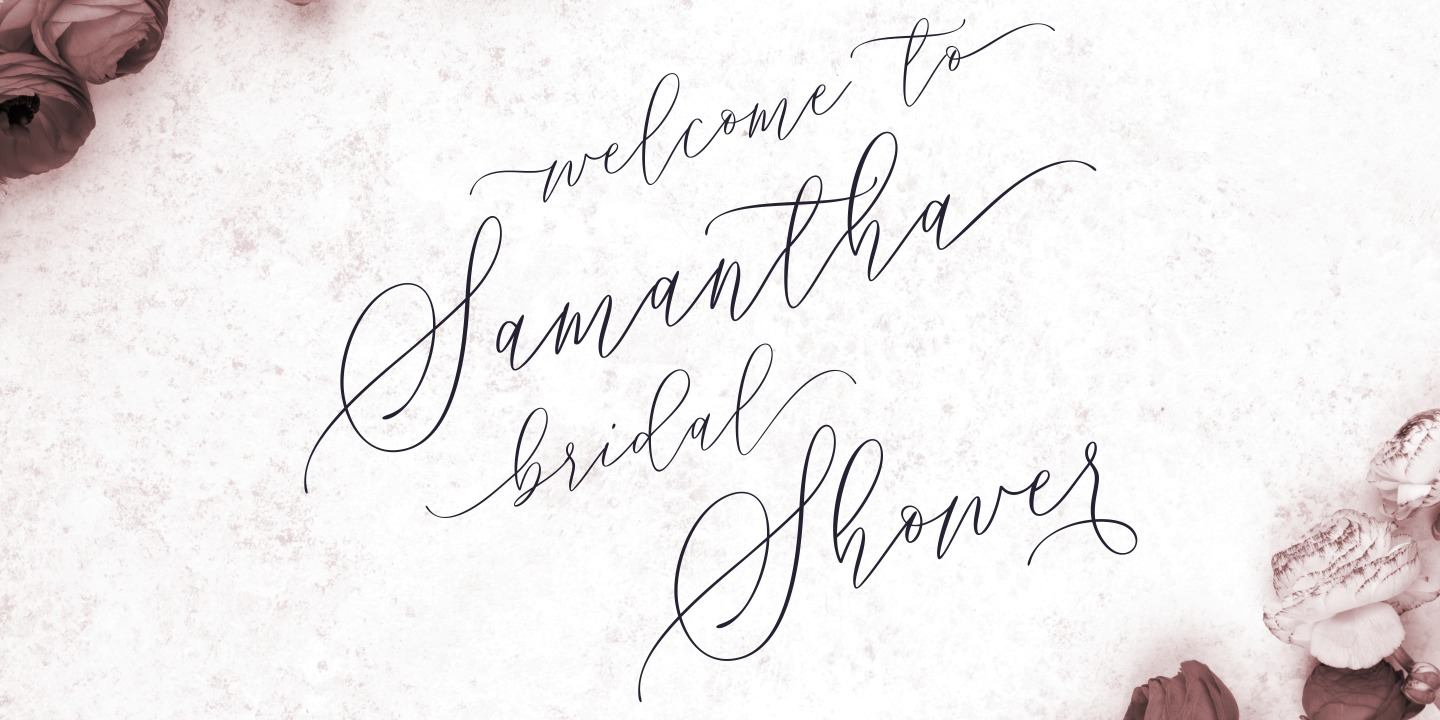 welcome to
Samantha
bridal
Shower